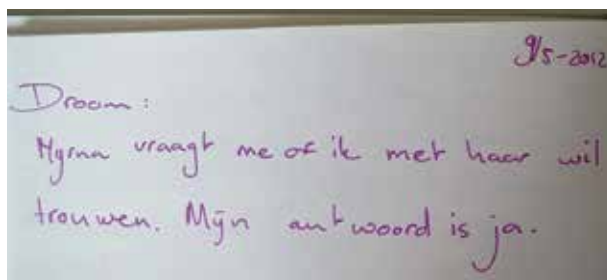 9/5-2012
Droom:
Myrna vraagt me of ik met haar wil
trouwen. Mijn antwoord is ja.